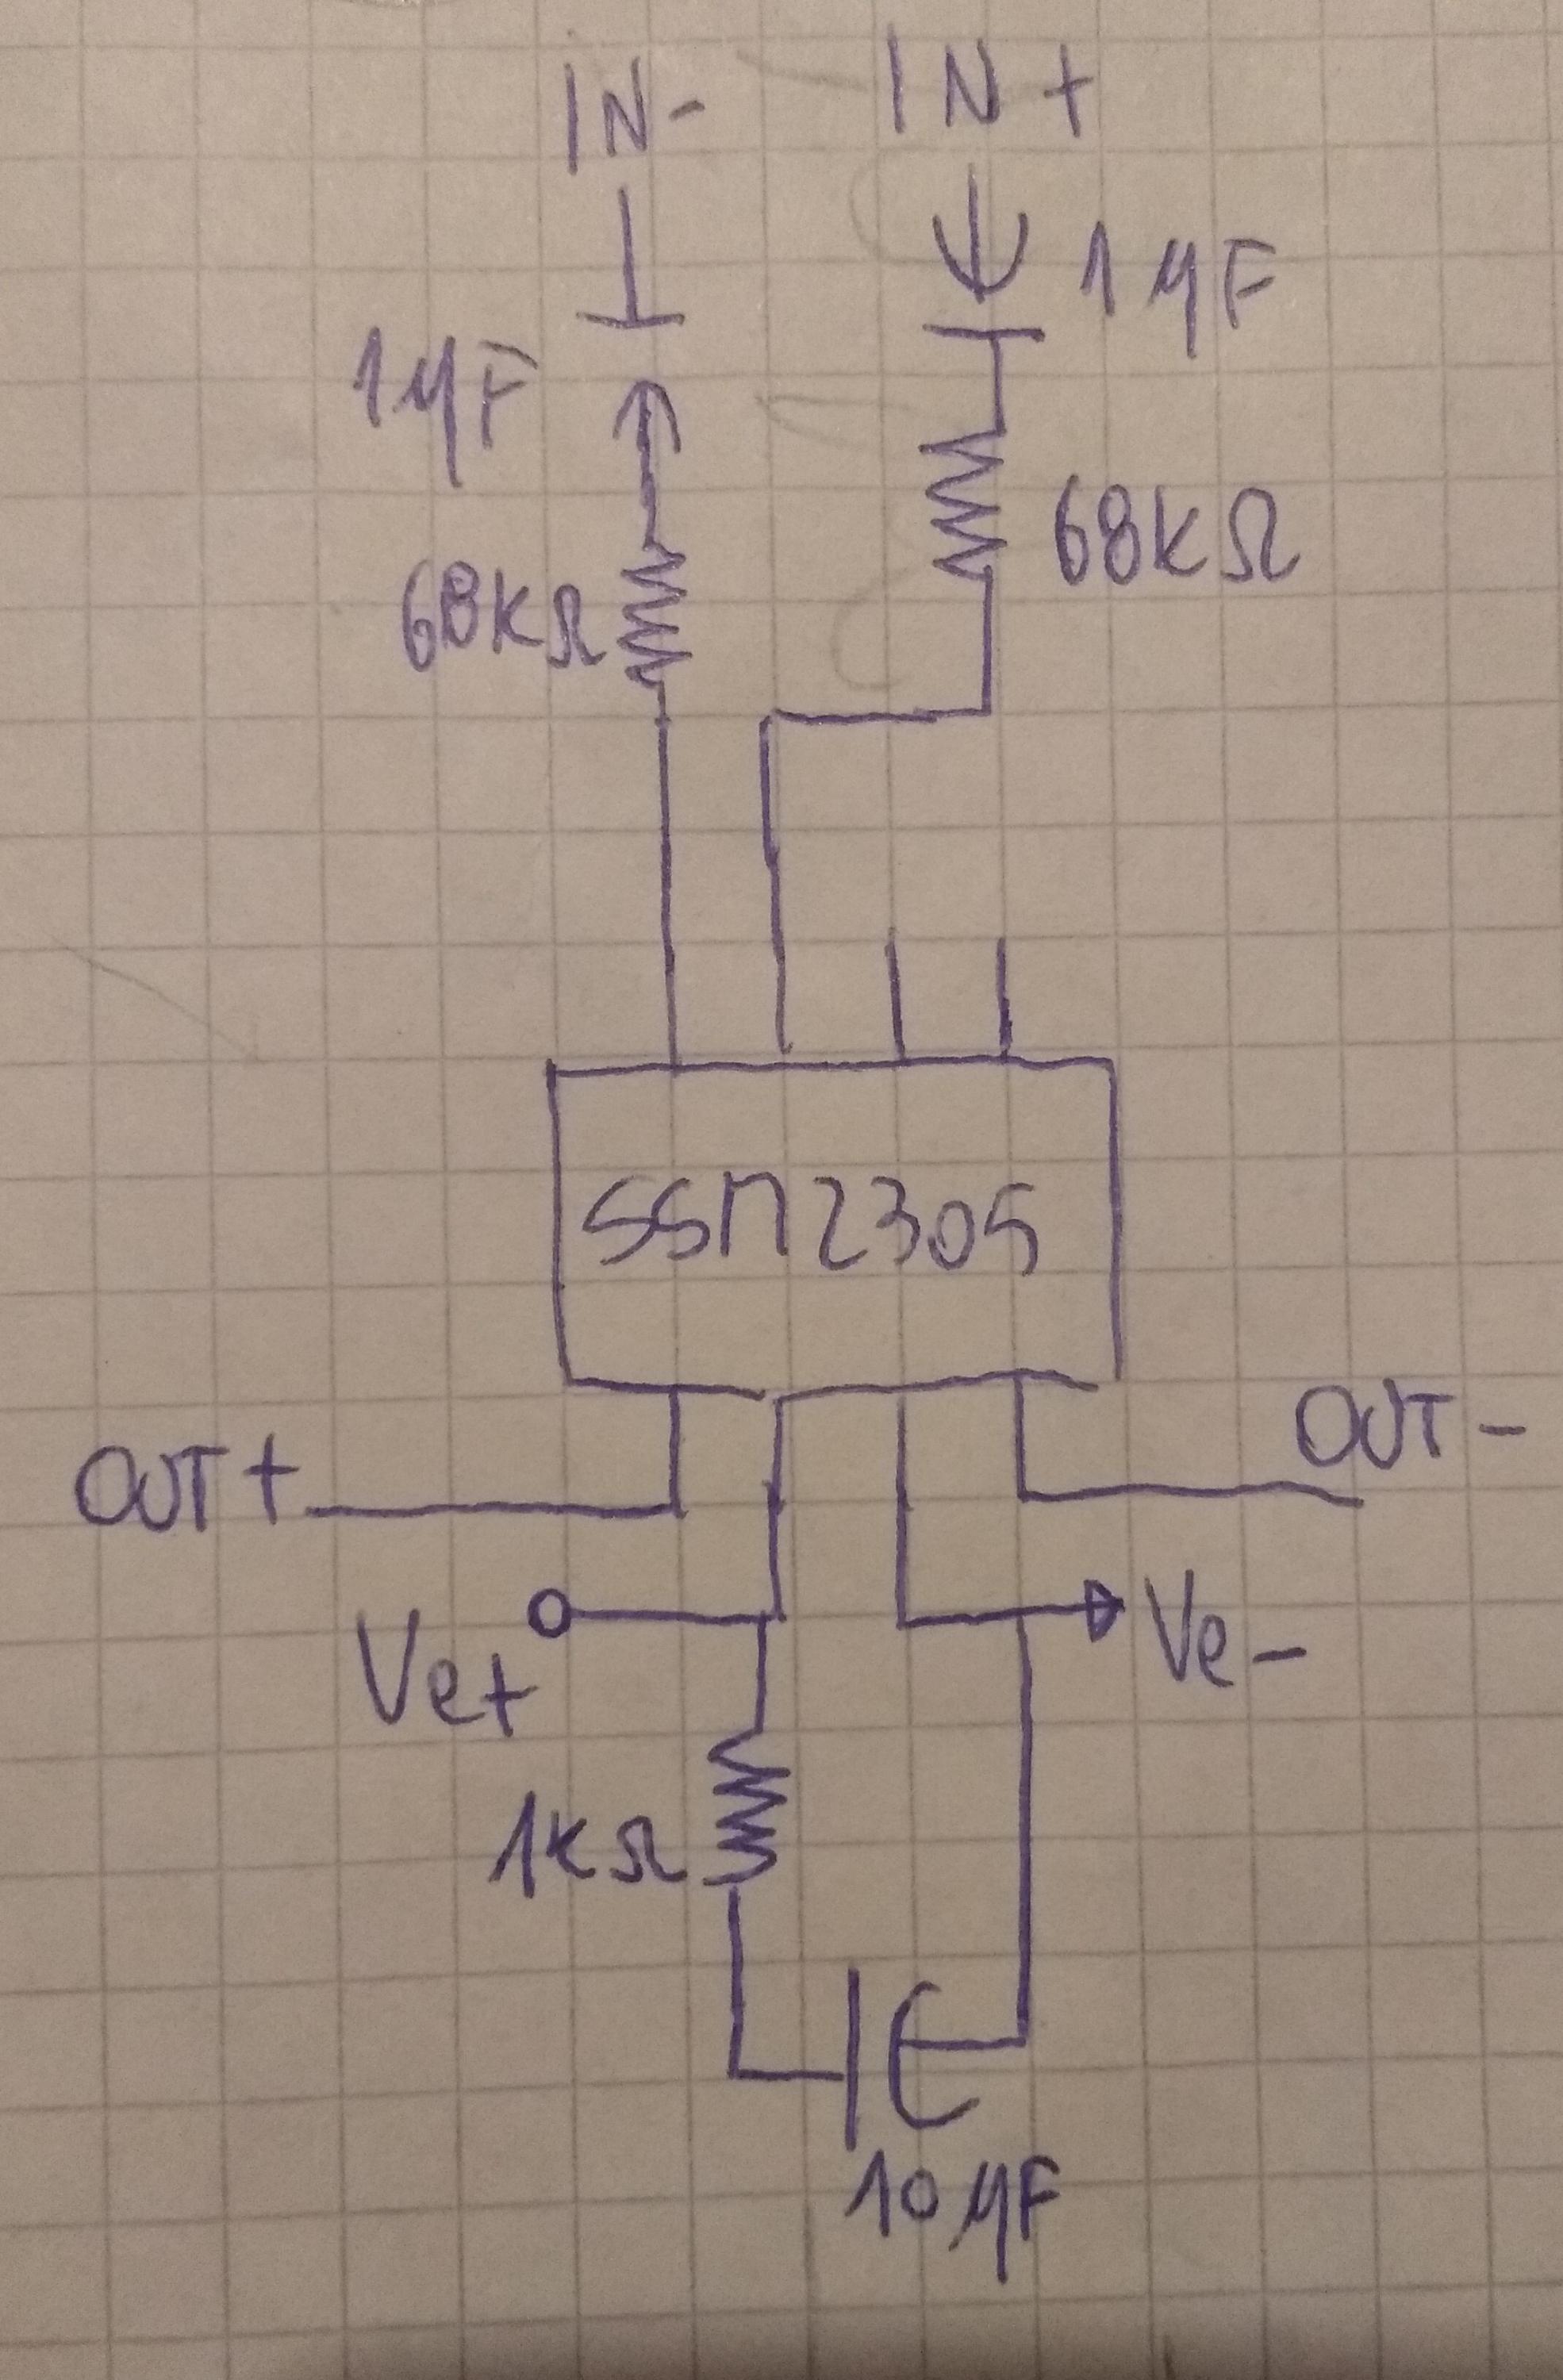 IN- IN+
1μF
1μF
68kΩ
68kΩ
SSM2305
OUT+ OUT-
Ve+ Ve-
1kΩ
10μF